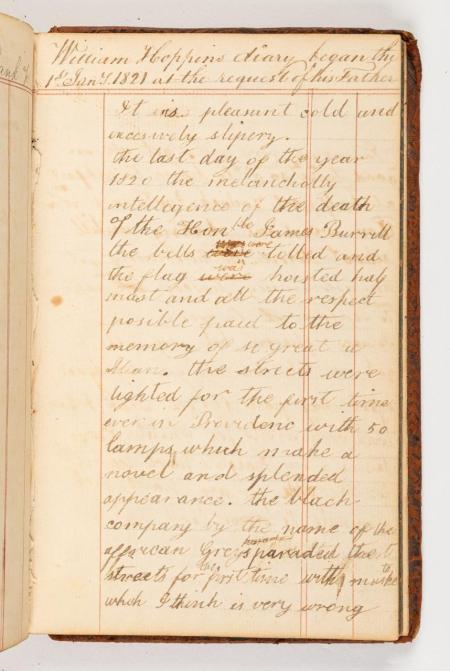 William Hoppins diary began the
1st Jany. 1821 at the request of his Father
It is pleasant cold and
excesively slipery.
the last day of the year
1820 the melancholly
intellegence of the death
Of the Honble James Burrill
the bells were tolled and
the flag was hoisted half
mast and all the respect
posible paid to the
memory of so great a
Man. the streets were
lighted for the first time
ever in Providenc with 50
lamps which make a
novel and splended
appearance. the black
company by the name of the
affarican Greys paraded the
streets for the first time with
which I think is very wrong